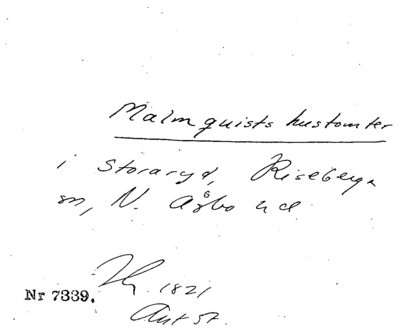 Malmquists hustomter
i Storaryd, Riseberga
sn, N. Åsbo hd
1821
Nr 7339.